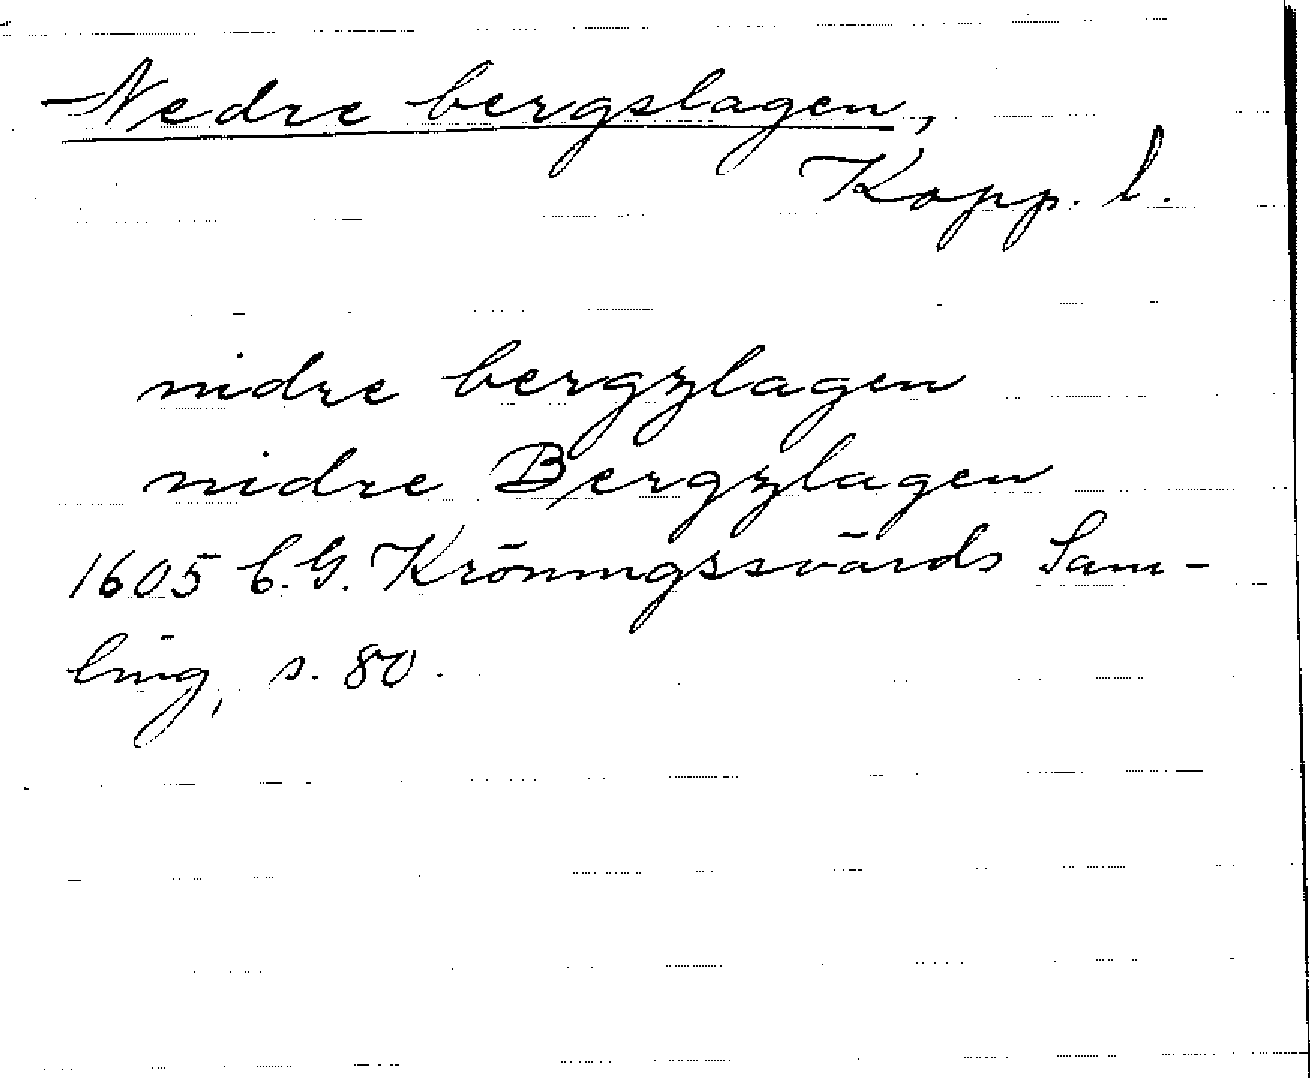 Nedre bergslagen,
Kopp. l.
nidre bergzlagen
nidre Bergzlagen
1605 C. G. Kröningssvärds Sam-
ling, s. 80.